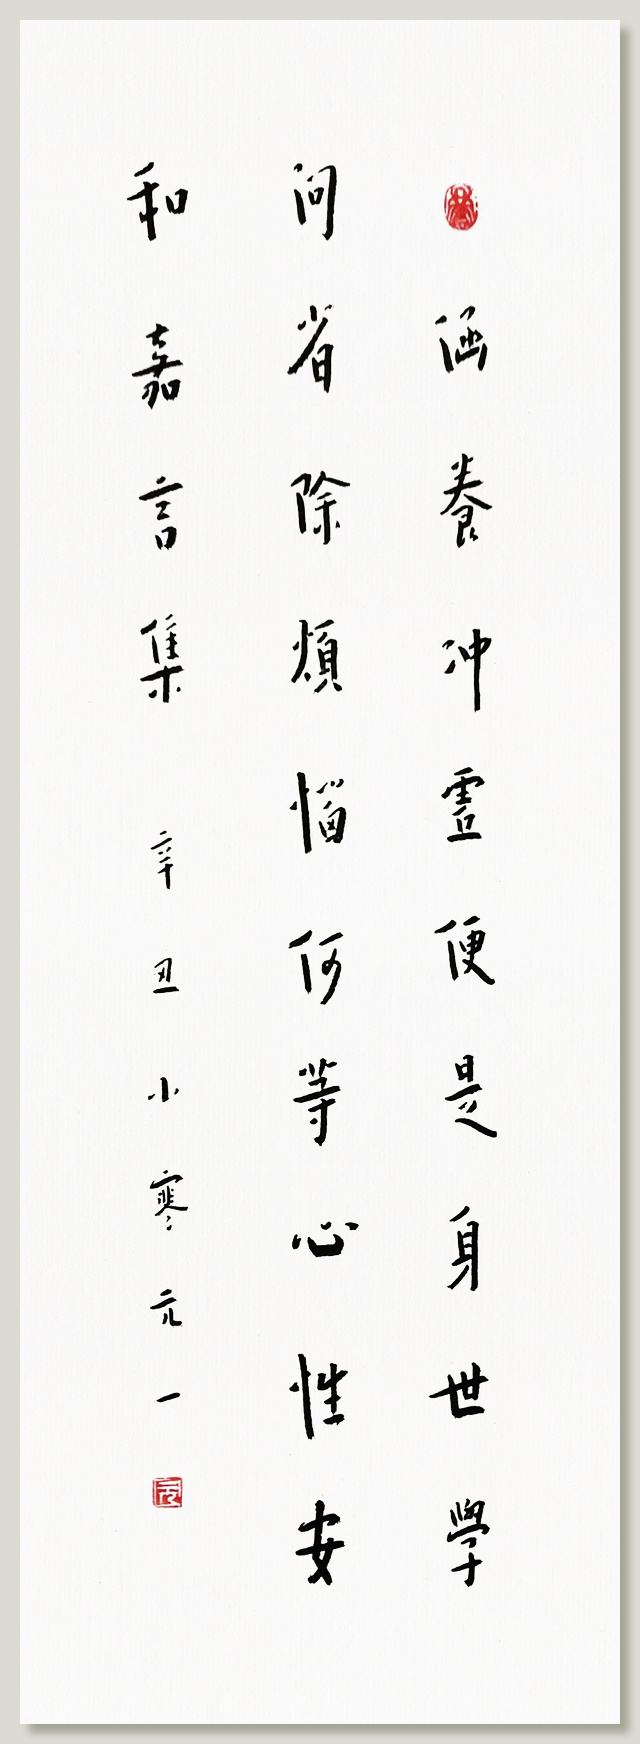 涵養冲虛便是身世學
問省除煩惱何等心性安
和嘉言集 辛丑小寒元一